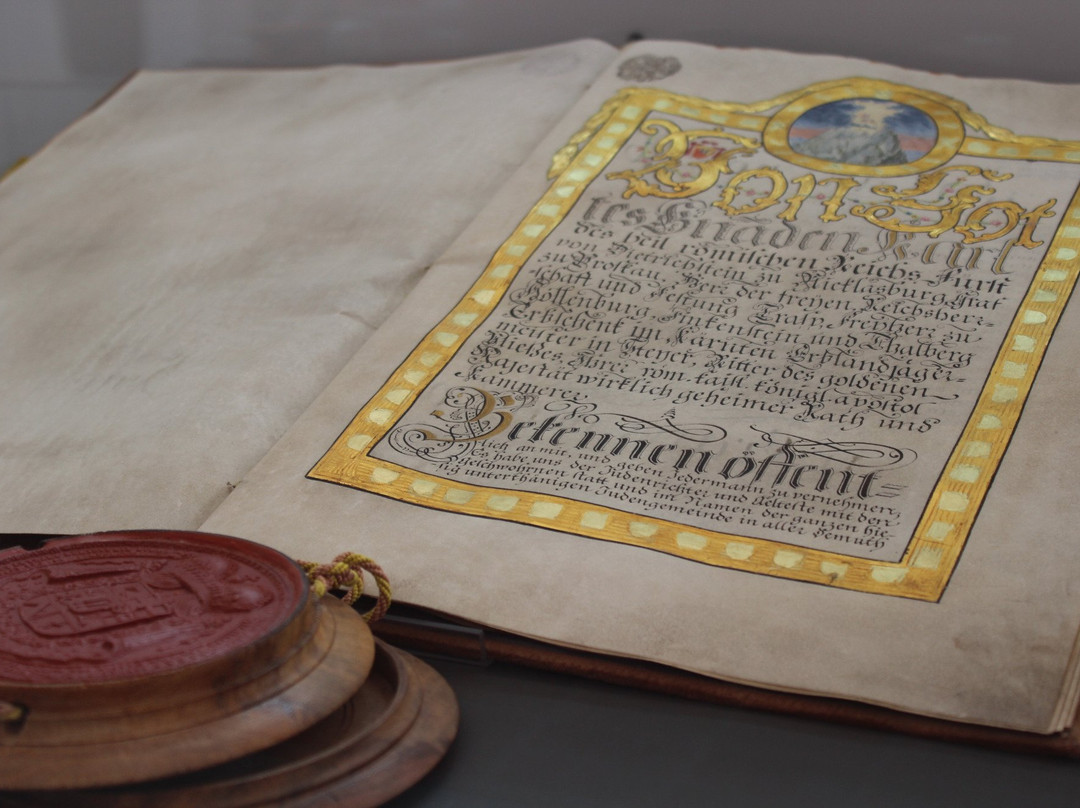 Von Got
tes Gnaden Karl
des heil römischen Reichs Fürst
von Dietrichstein zu Nicklasburg, Graf
zu Proskau, Herr der freyen Reichsherr=
schaft und Festung Trasp, Freyherr zu
Hollenburg, Finkenstein und Thalberg
Erbschenk im Kärnten Erblandjäger=
meister in Steyer, Ritter des goldenen
Vließes, Ihrer röm. kaisl. königl. apostol
Majestät wirklich geheimer Rath und
Kammerer.
Bekennen öffent=
lich an mit, und geben jedermann zu vernehmen,
Es habe uns der Judenrichter und Aelteste mit den
geschwohrnen statt und im Namen der ganzen hie=
sig unterthänigen Judengemeinde in aller Demuth